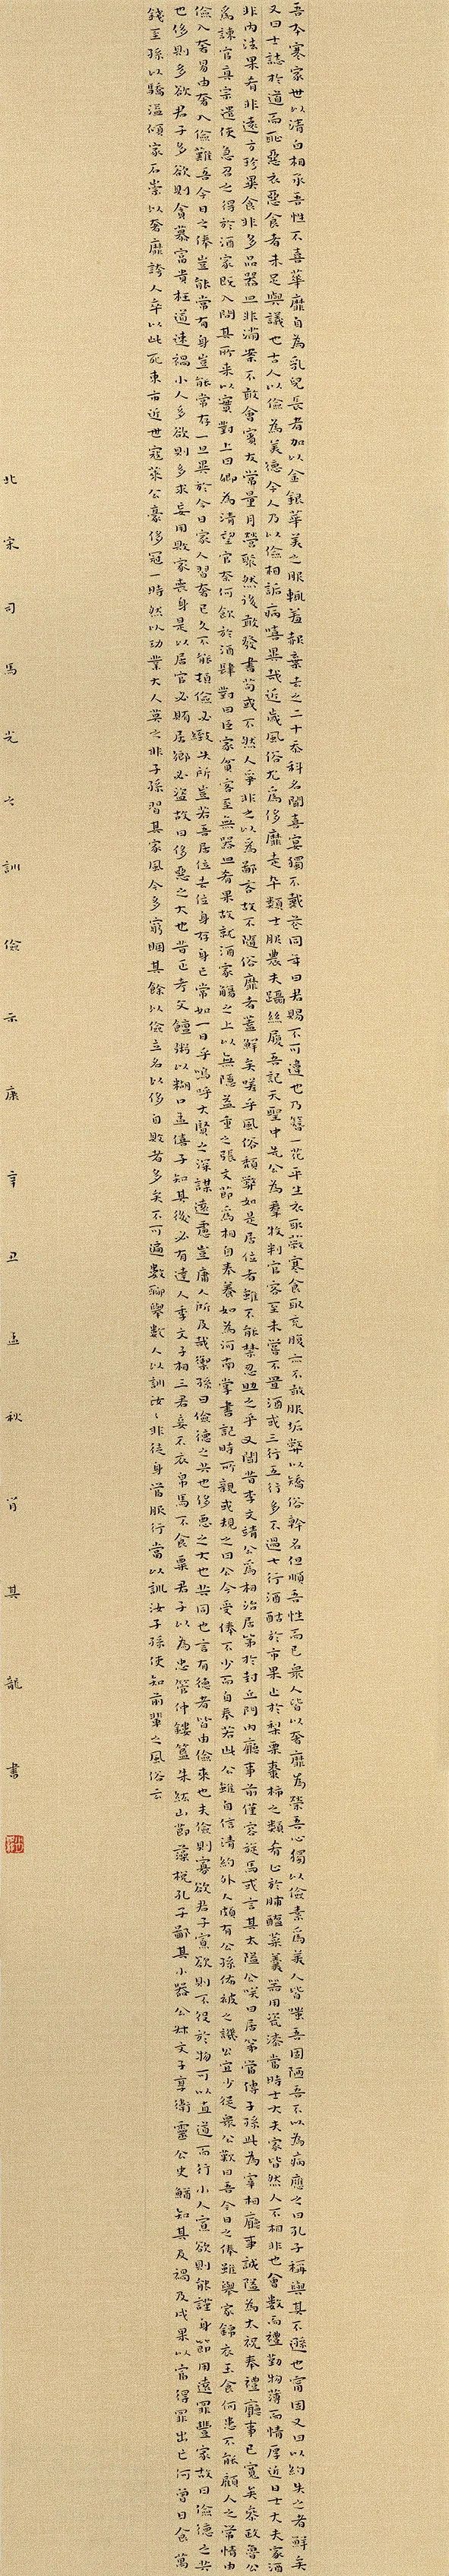 吾本寒家世以清白相承吾性不喜華靡自為乳兒長者加以金銀華美之服輒羞赧棄去之二十忝科名聞喜宴獨不戴花同年曰君賜不可違也乃簪一花平生衣取蔽寒食取充腹亦不敢服垢弊以矯俗幹名但順吾性而已眾人皆以奢靡為榮吾心獨以儉素為美人皆嗤吾固陋吾不以為病應之曰孔子稱與其不遜也寧固又曰以約失之者鮮矣
又曰士誌於道而恥惡衣惡食者未足與議也古人以儉為美德今人乃以儉相詬病嘻異哉近歲風俗尤為侈靡走卒類士服農夫躡絲履吾記天聖中先公為群牧判官客至未嘗不置酒或三行五行多不過七行酒酤於市果止於梨栗棗柿之類肴止於脯醢菜羹器用瓷漆當時士大夫家皆然人不相非也會數而禮勤物薄而情厚近日士大夫家酒
非內法果肴非遠方珍異食非多品器皿非滿案不敢會賓友常量月營聚然後敢發書苟或不然人爭非之以為鄙吝故不隨俗靡者蓋鮮矣嗟乎風俗頹弊如是居位者雖不能禁忍助之乎又聞昔李文靖公為相治居第於封丘門內廳事前僅容旋馬或言其太隘公笑曰居第當傳子孫此為宰相廳事誠隘為太祝奉禮廳事已寬矣參政魯公
為諫官真宗遣使急召之得於酒家既入問其所來以實對上曰卿為清望官奈何飲於酒肆對曰臣家貧客至無器皿肴果故就酒家觴之上以無隱益重之張文節為相自奉養如為河南掌書記時所親或規之曰公今受俸不少而自奉若此公雖自信清約外人頗有公孫布被之譏公宜少從眾公歎曰吾今日之俸雖舉家錦衣玉食何患不能顧人之常情由
儉入奢易由奢入儉難吾今日之俸豈能常有身豈能常存一旦異於今日家人習奢已久不能頓儉必致失所豈若吾居位去位身存身亡常如一日乎嗚呼大賢之深謀遠慮豈庸人所及哉禦孫曰儉德之共也侈惡之大也共同也言有德者皆由儉來也夫儉則寡欲君子寡欲則不役於物可以直道而行小人寡欲則能謹身節用遠罪豐家故曰儉德之共
也侈則多欲君子多欲則貪慕富貴枉道速禍小人多欲則多求妄用敗家喪身是以居官必賄居鄉必盜故曰侈惡之大也昔正考父饘粥以糊口孟僖子知其後必有達人季文子相三君妾不衣帛馬不食粟君子以為忠管仲鏤簋朱紘山節藻棁孔子鄙其小器公叔文子享衛靈公史鰌知其及禍及戌果以富得罪出亡何曾日食萬
錢至孫以驕溢傾家石崇以奢靡誇人卒以此死東市近世寇萊公豪侈冠一時然以功業大人莫之非子孫習其家風今多窮困其餘以儉立名以侈自敗者多矣不可遍數聊舉數人以訓汝汝非徒身當服行當以訓汝子孫使知前輩之風俗云
北宋司馬光之訓儉示康辛丑孟秋肖其龍書